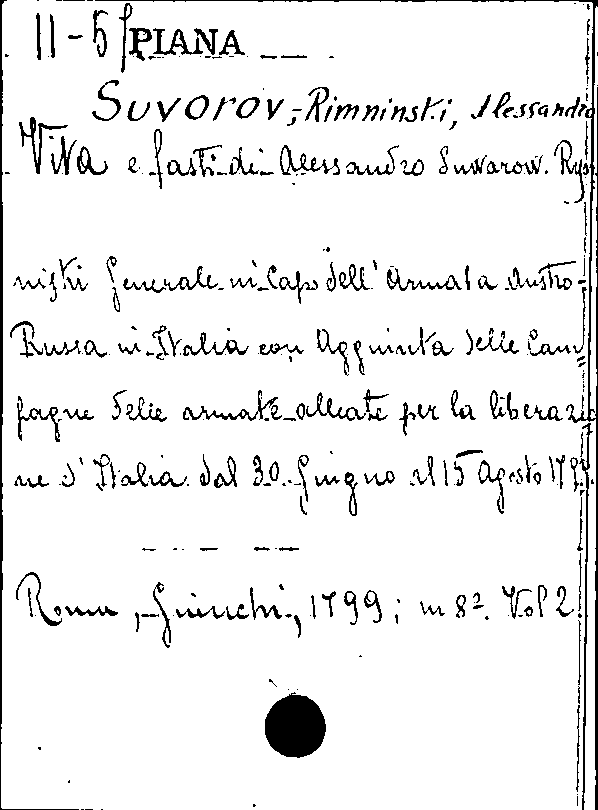 II-5 PIANA
Suvorov,-Rimninski, Alessandro
Vita e fasti di Alessandro Suwarow. Rym
niski Generale in Capo dell'Armata Austro-
Russa in Italia con Aggiunta delle Cam=
pagne delle armate alleate per la liberazio
ne d'Italia dal 30. Giugno al 15 Agosto 1799.
Roma, Giunchi, 1799; in 8º. Vol 2.